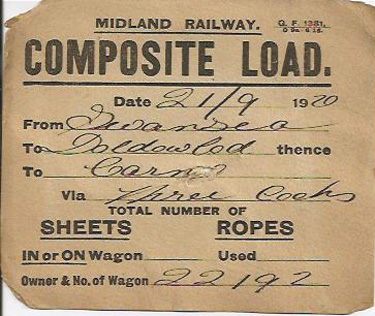 MIDLAND RAILWAY. G. F. 1381.
COMPOSITE LOAD.
Date 21/9 1920
From Swansea
To Doldowlod thence
To
Via Three Cocks
TOTAL NUMBER OF
SHEETS ROPES
IN or ON Wagon Used
Owner & No. of Wagon 22192